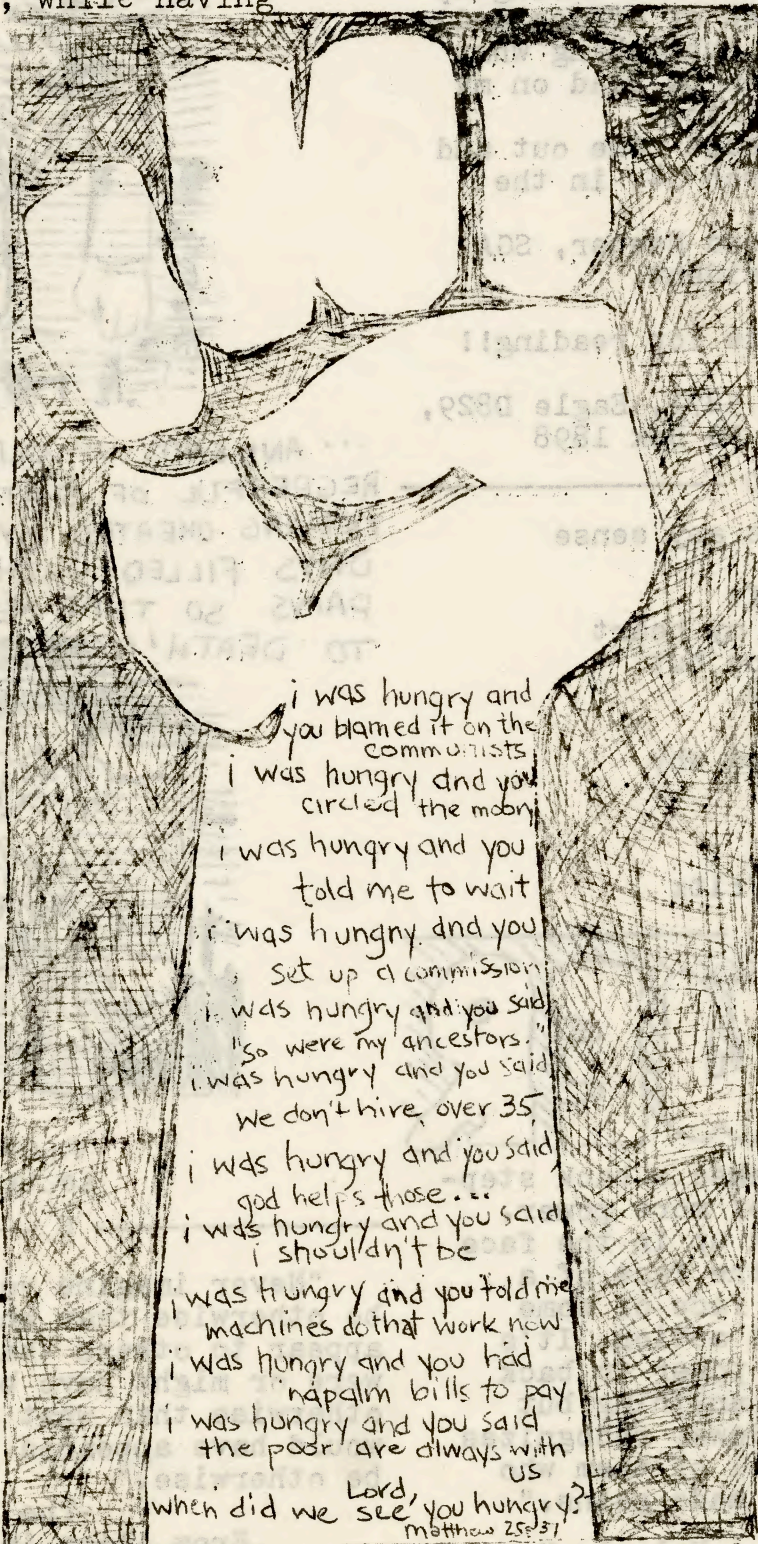 , while having
i was hungry and
you blamed it on the
communists
i was hungry and you
circled the moon
i was hungry and you
told me to wait
i was hungry and you
set up a commission
i was hungry and you said
"so were my ancestors."
i was hungry and you said
we don't hire over 35
i was hungry and you said
god helps those...
i was hungry and you said
i shouldn't be
i was hungry and you told me
machines do that work now
i was hungry and you had
napalm bills to pay
i was hungry and you said
the poor are always with
us
Lord,
when did we see you hungry?
Matthew 25:37